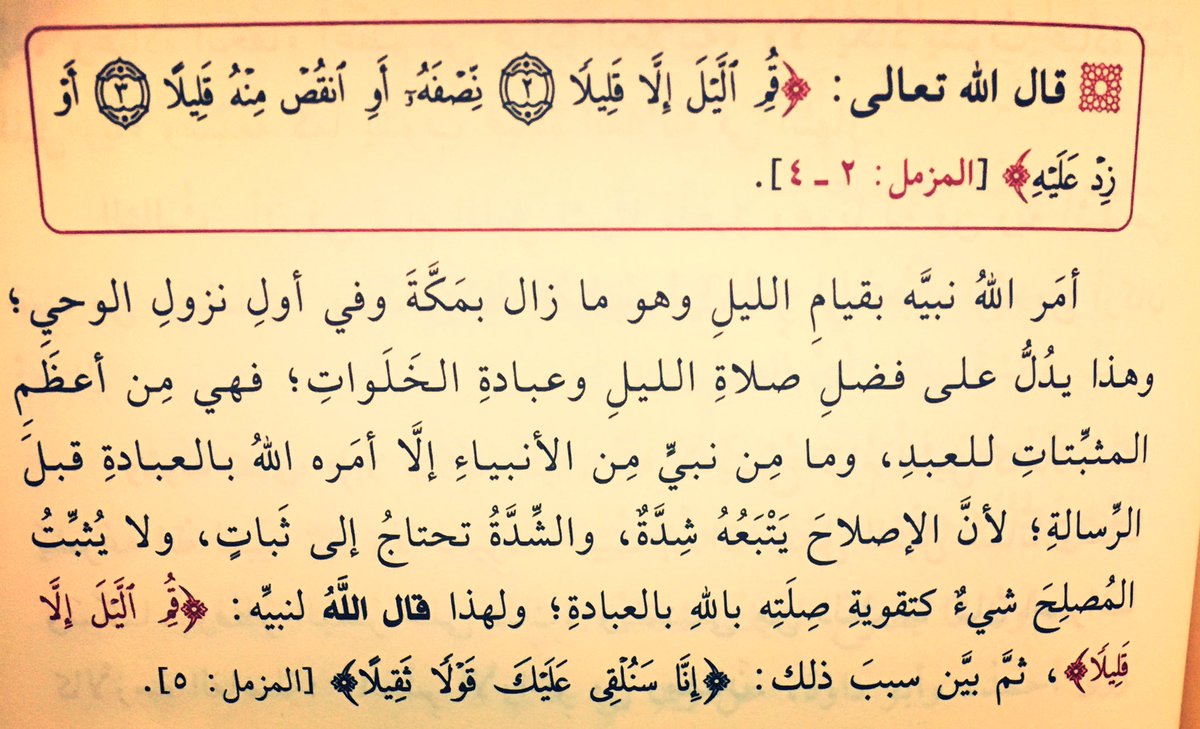 قال الله تعالى: ﴿قُمِ ٱلَّيۡلَ إِلَّا قَلِيلٗا ٢ نِّصۡفَهُۥٓ أَوِ ٱنقُصۡ مِنۡهُ قَلِيلًا ٣ أَوۡ
زِدۡ عَلَيۡهِ﴾ [المزمل: ٢ ـ ٤].
أمَر اللهُ نبيَّه بقيامِ الليلِ وهو ما زال بمَكَّةَ وفي أولِ نزولِ الوحيِ؛
وهذا يدُلُّ على فضلِ صلاةِ الليلِ وعبادةِ الخَلَواتِ؛ فهي مِن أعظَمِ
المثبِّتاتِ للعبدِ، وما مِن نبيٍّ مِن الأنبياءِ إلَّا أمَره اللهُ بالعبادةِ قبلَ
الرِّسالةِ؛ لأنَّ الإصلاحَ يَتْبَعُهُ شِدَّةٌ، والشِّدَّةُ تحتاجُ إلى ثَباتٍ، ولا يُثبِّتُ
المُصلِحَ شيءٌ كتقويةِ صِلَتِه باللهِ بالعبادةِ؛ ولهذا قال اللَّهُ لنبيِّه: ﴿قُمِ ٱلَّيۡلَ إِلَّا
قَلِيلٗا﴾، ثمَّ بيَّن سببَ ذلك: ﴿إِنَّا سَنُلۡقِي عَلَيۡكَ قَوۡلٗا ثَقِيلًا﴾ [المزمل: ٥].